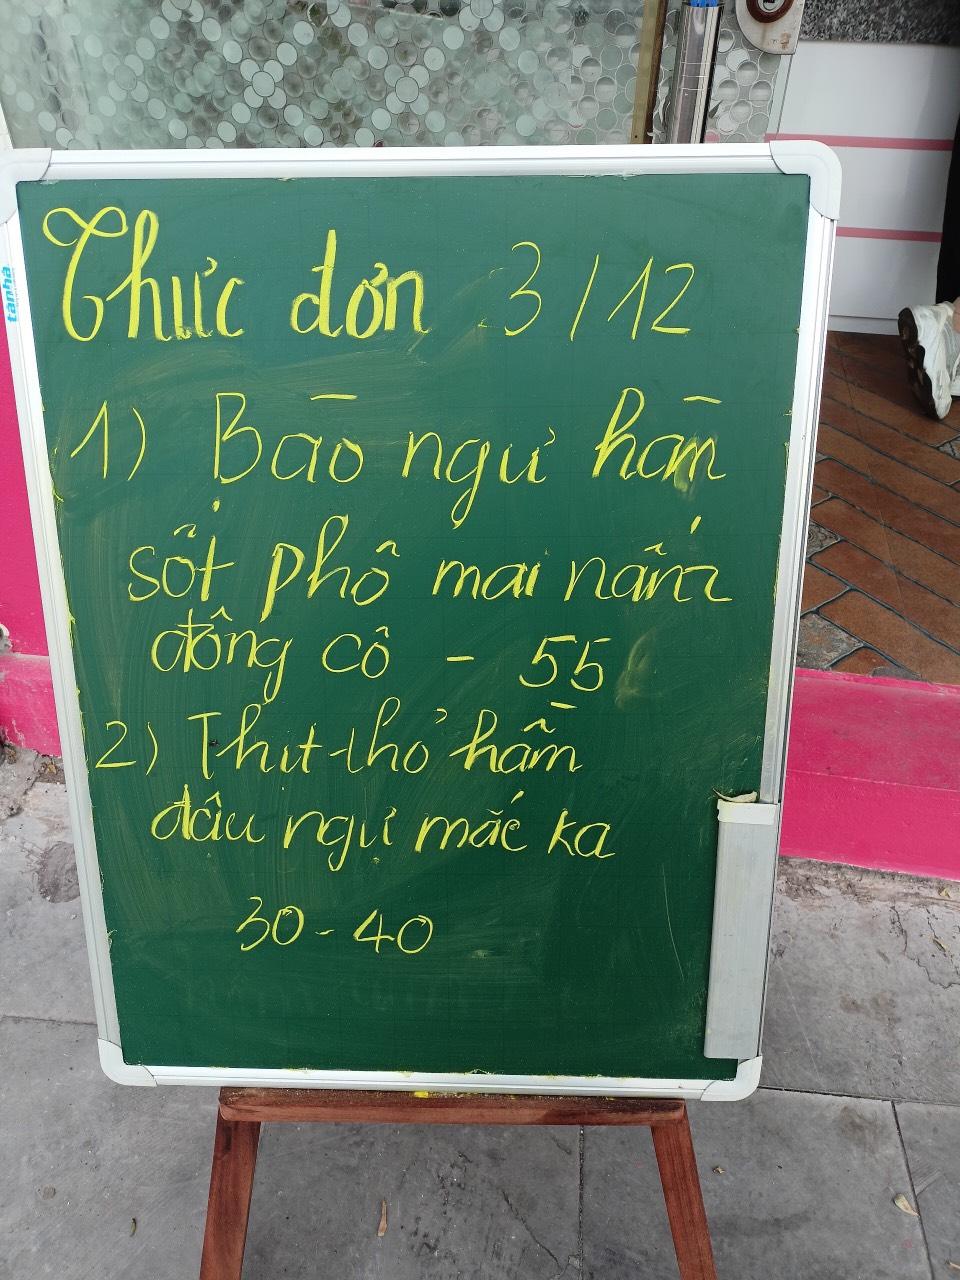 Thực đơn 3/12
1) Bào ngư hầm
sốt phô mai nấm
đông cô - 55
2) Thịt thỏ hầm
đậu ngự mắc ka
30 - 40
tanhà